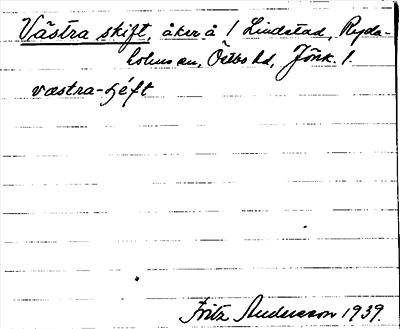 Västra skift, åker å 1 Lindstad, Ryda-
holms sn, Östbo hd, Jönk. l.
væstra-ſjéft
Fritz Andersson 1939.